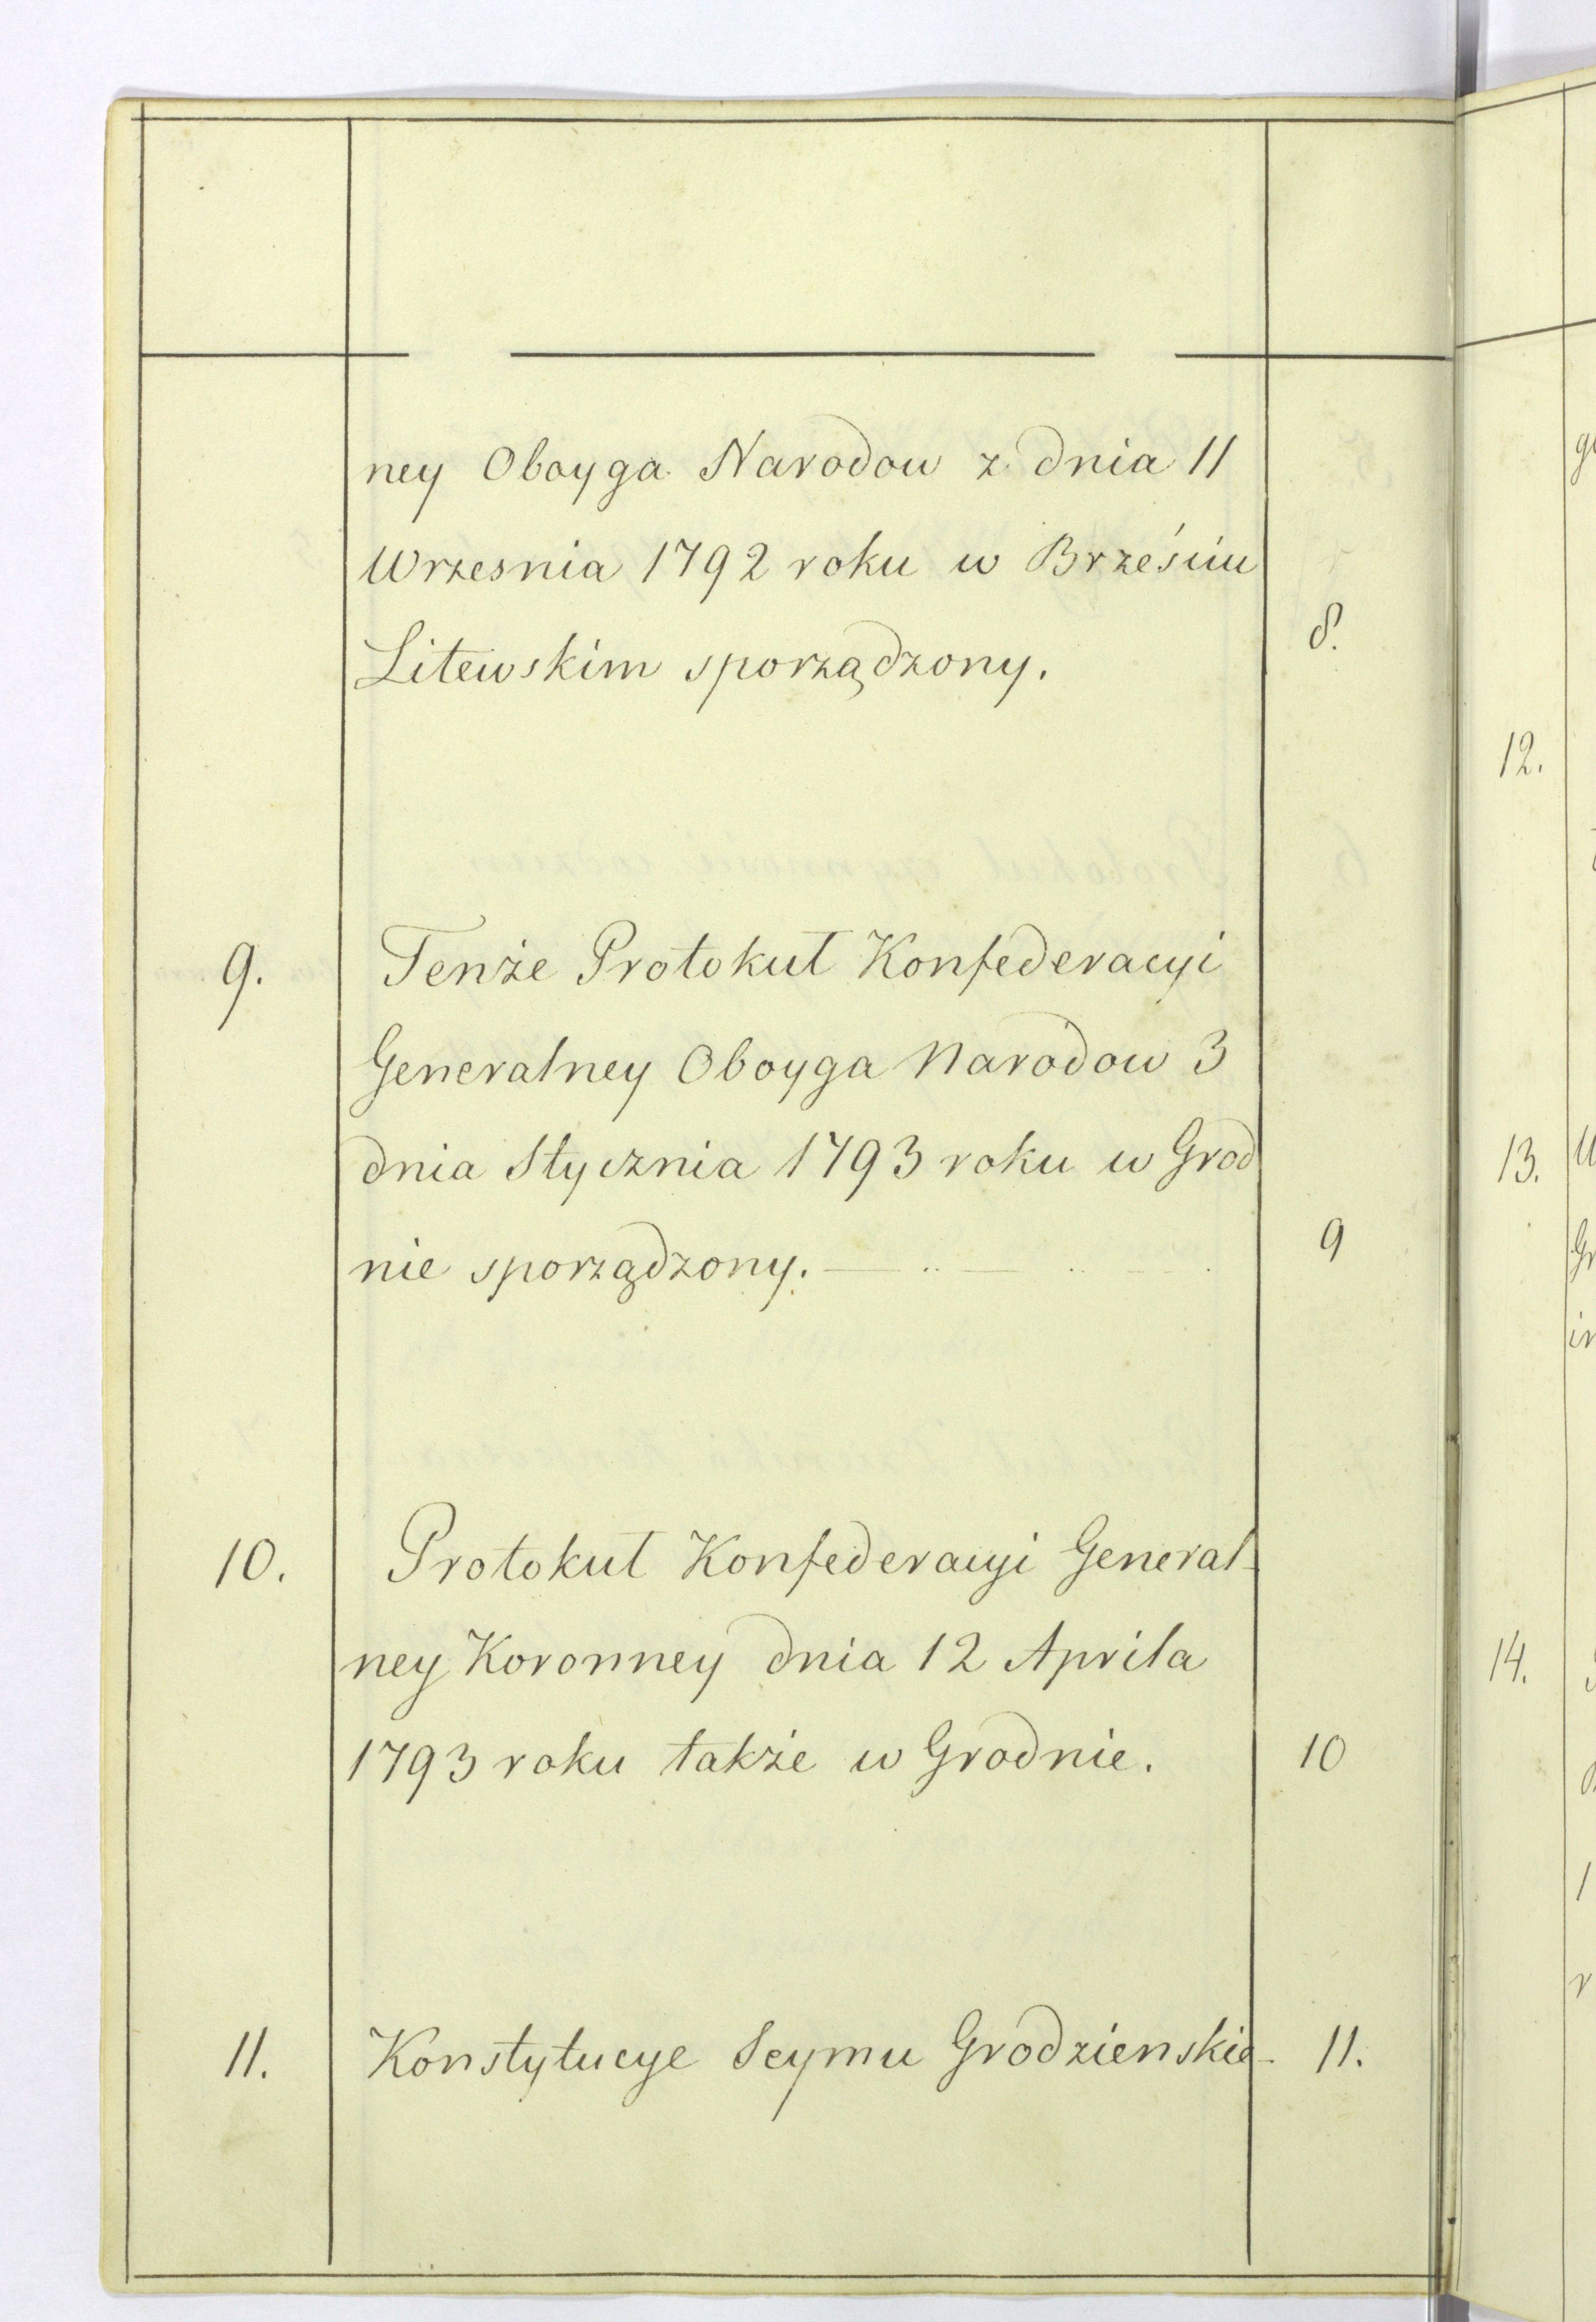 ney Oboyga Narodow z dnia 11
Wrzesnia 1792 roku w Brześciu
8.
Litewskim sporządzony.
9. Tenże Protokuł Konfederacyi
Generalney Oboyga Narodow 3
dnia Stycznia 1793 roku w Grod
nie sporządzony. 9
10. Protokuł Konfederacyi General-
ney Koronney dnia 12 Aprila
1793 roku także w Grodnie. 10
11. Konstytucye Seymu Grodzienskie- 11.
12.
13.
14.